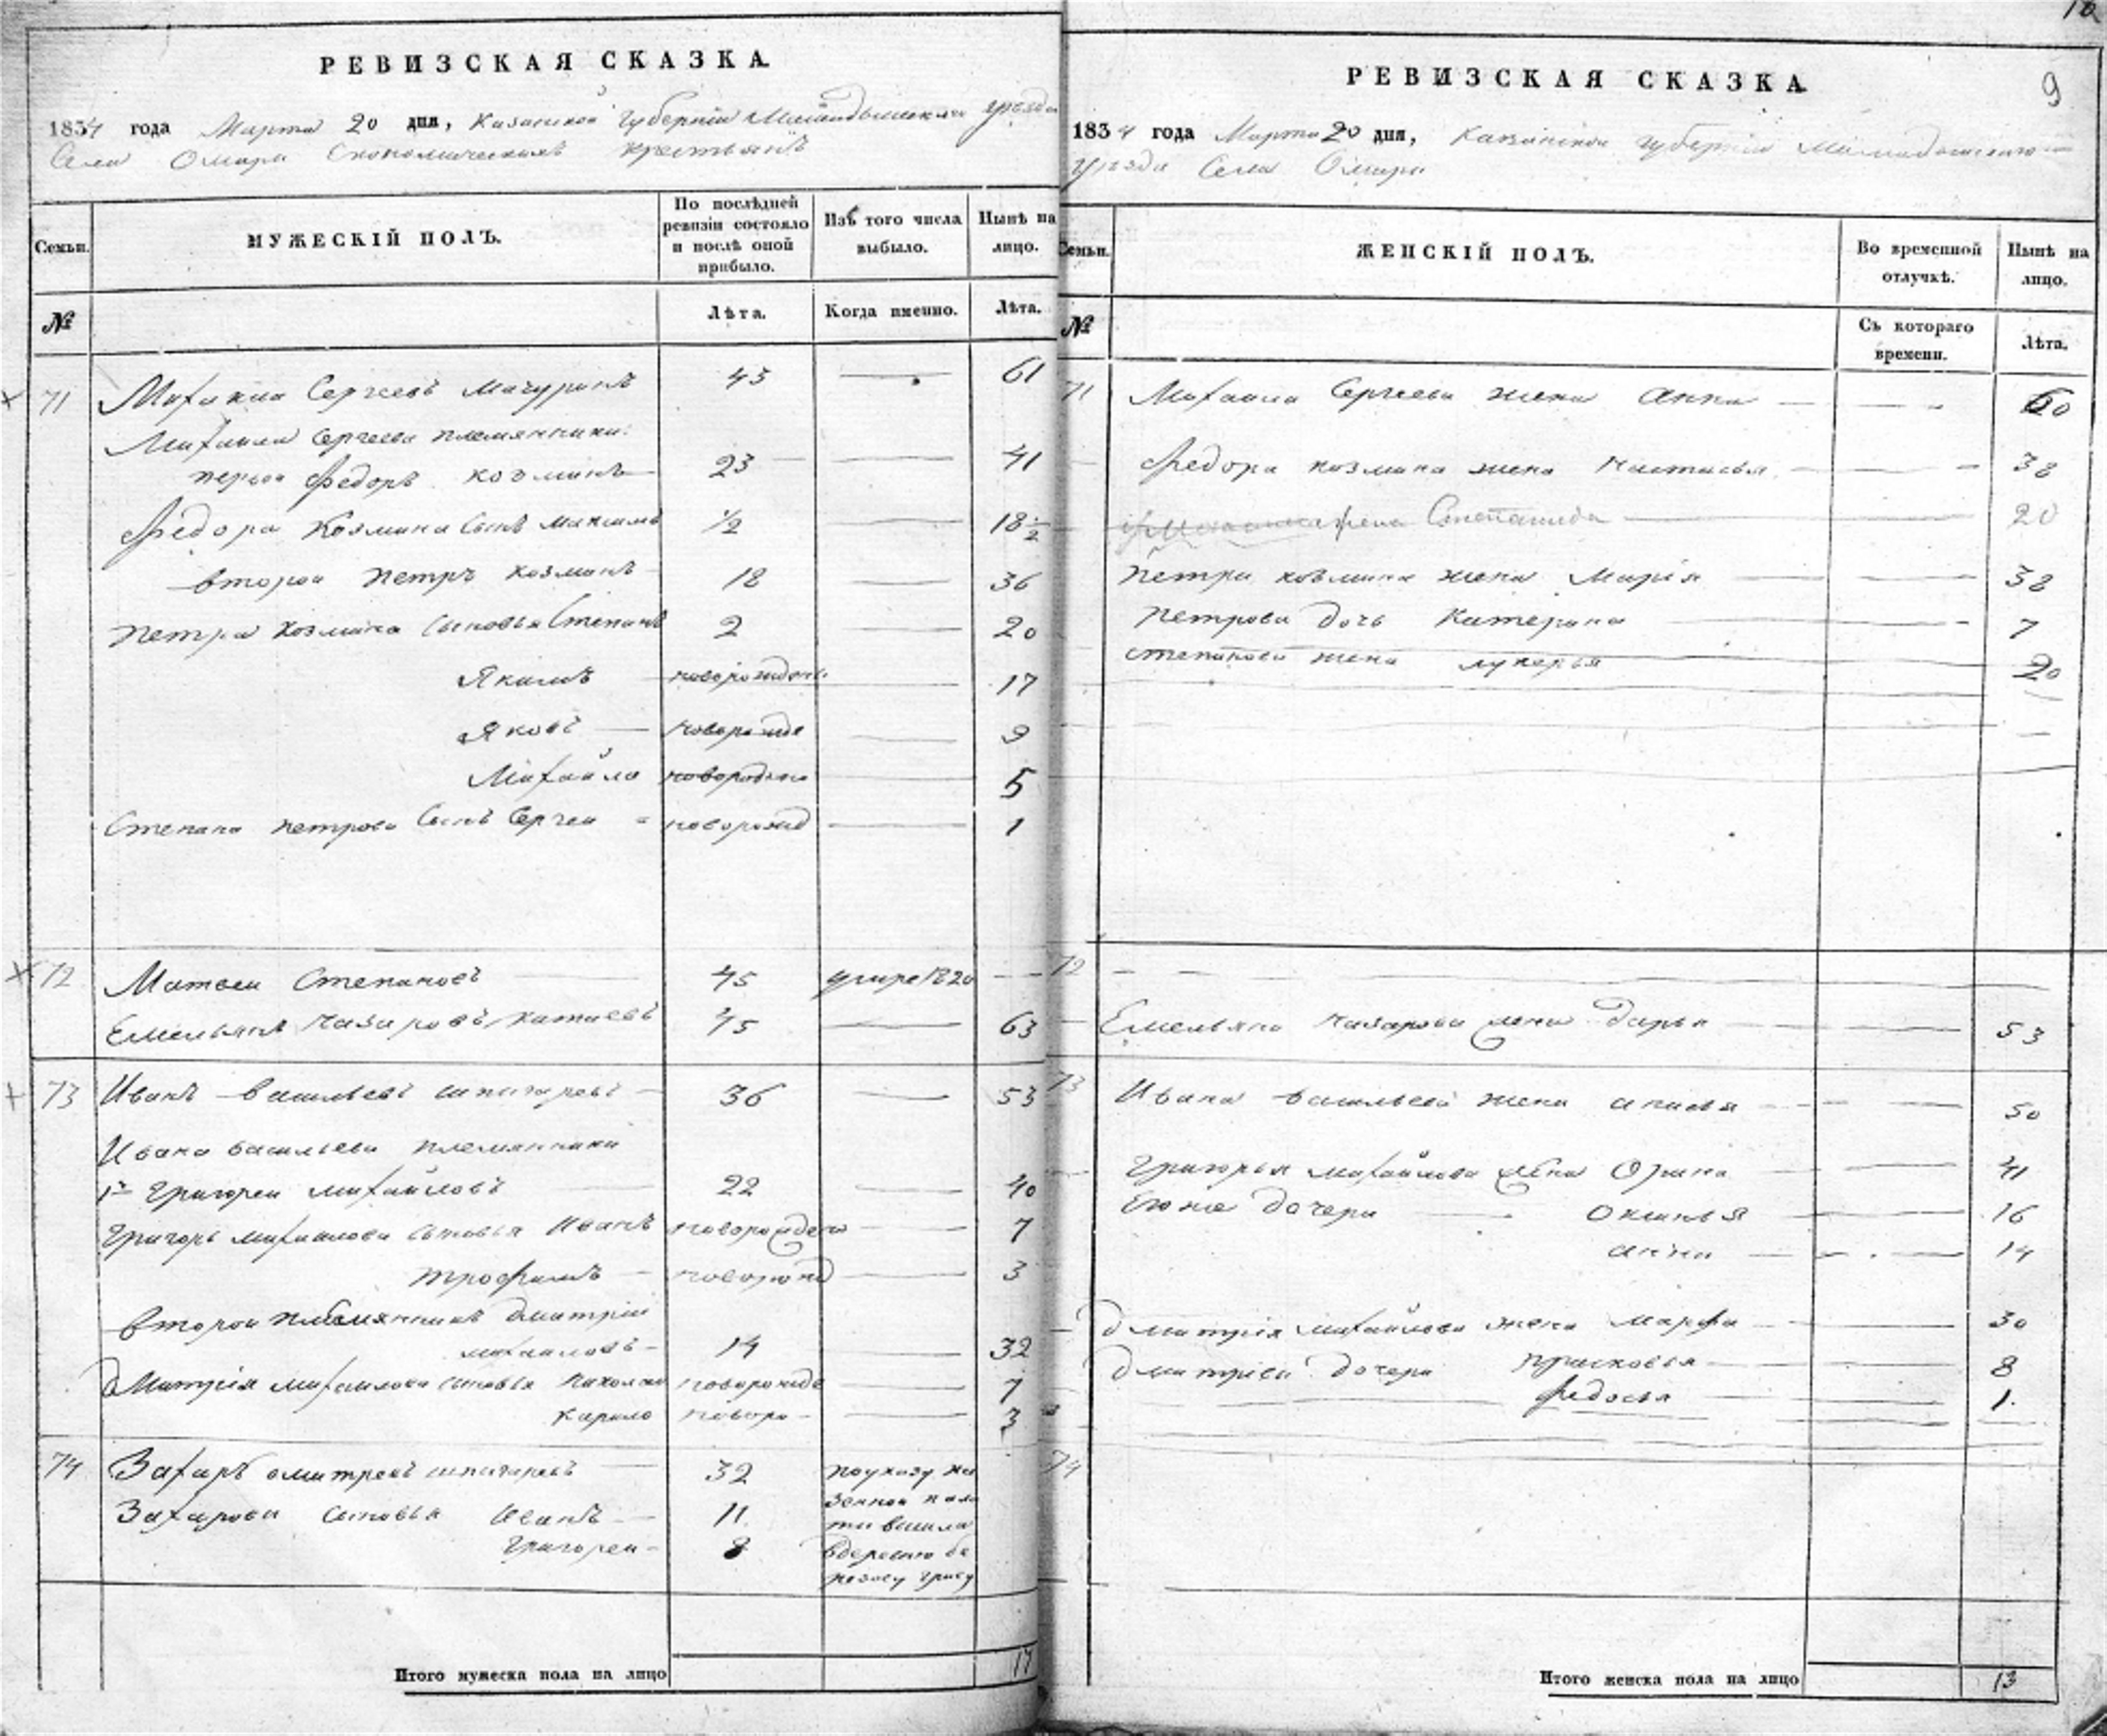 РЕВИЗСКАЯ СКАЗКА
1834 года Марта 20 дня, Казанской Губернии Мамадышскаго уезда
Села Омари Экономическихъ крестьянъ
Семьи.
МУЖЕСКІЙ ПОЛЪ.
По послѣдней ревизіи состояло и послѣ оной прибыло.
Изъ того числа выбыло.
Нынѣ на лицо.
№
Лѣта.
Когда именно.
Лѣта.
71 Михайла Сергеевъ Мачуринъ 43 — 61
Михайла Сергеева племянники:
первой Федоръ Козминъ 23 — 41
Федора Козмина Сынъ Максимъ 1/2 — 18 1/2
второй Петръ Козминъ 18 — 36
Петра Козмина Сыновья Степанъ 2 — 20
Якимъ новорожден. 17
Яковъ — новорожде — 9
Михайла новорожде 5
Степана петрова Сынъ Сергеи новорожд — 1
72 Матвеи Степановъ 45 умре 1820 —
Емельянъ Назаровъ 45 — 63
73 Иванъ Васильевъ 36 — 53
Ивана Васильева племянники
1й Григореи Михайловъ 22 — 40
Григорь Михаилова сыновья Иванъ новорожден — 7
Трофимъ — новорожд — 3
Второй племянникъ Дмитріи
михаиловъ — 14 — 32
Дмитрія Михаилова сыновья Николаи новорожде — 7
Карило новоро — 3
74 Захаръ Дмитревъ 32 по указу ка
Захарова сыновья Иванъ — 11 зенной пала
Григореи — 8 ты
Итого мужеска пола на лицо 17
10
9
РЕВИЗСКАЯ СКАЗКА
1834 года Марта 20 дня, Казанской Губерніи Мамадышскаго
Уезда Села Омари
Семьи.
ЖЕНСКІЙ ПОЛЪ.
Во временной отлучкѣ.
Нынѣ на лицо.
№
Съ котораго времени.
Лѣта.
71 Михаила Сергеева жена Анна — 60
Федора Козмина жена Настасья — 38
жена Степанида — 20
Петра козмина жена Марія — 38
Петрова дочь Катерина — 7
Степанова жена лукерья 20
72
Емельяна Назарова жена Дарья — 53
73 Ивана Васильева жена — 50
Григорья михайлова жена Орина — 41
Его же дочери Оксинья — 16
анна — 14
Дмитрія михайлова жена Марфа — 30
Дмитріева дочери Прасковья — 8
Федосья — 1.
74
Итого женска пола на лицо 13